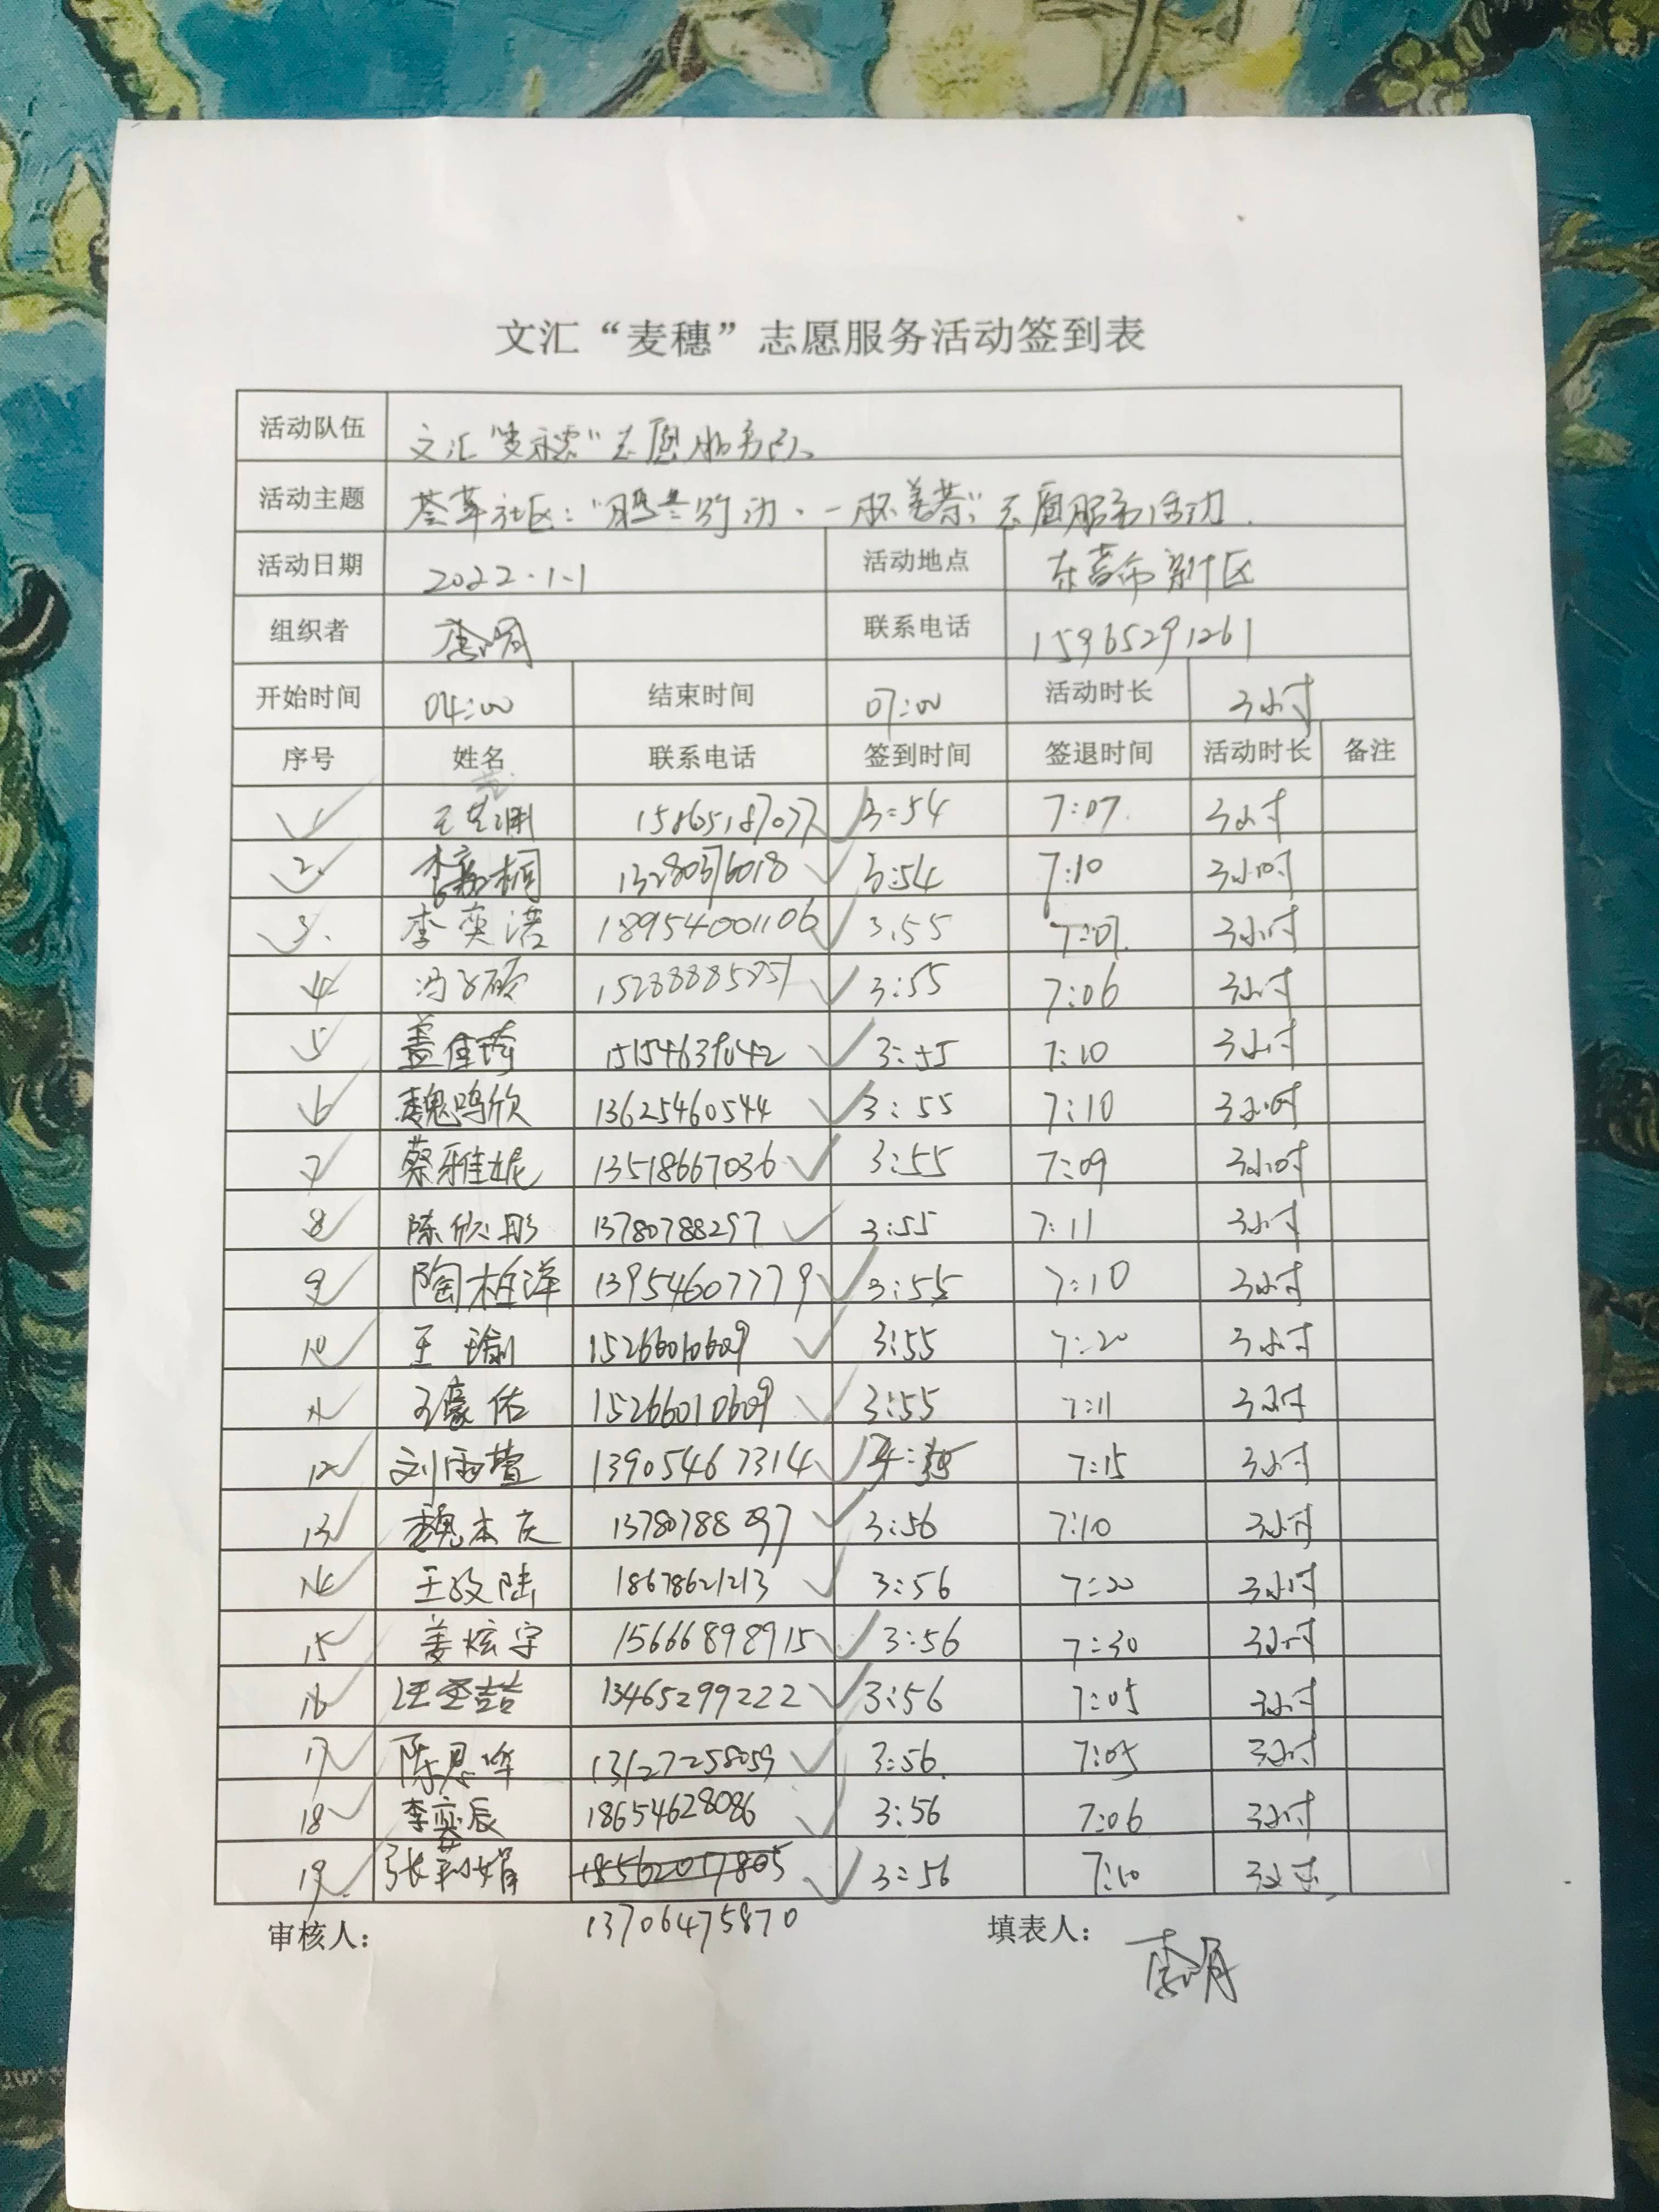 文汇“麦穗”志愿服务活动签到表
活动队伍 文汇“麦穗”志愿服务队
活动主题 荟萃社区：“暖冬行动·一杯姜茶”志愿服务活动
活动日期 2022.1.1 活动地点 东营市东营区
组织者 李明月 联系电话 15965291261
开始时间 04:00 结束时间 07:00 活动时长 3小时
序号 姓名 联系电话 签到时间 签退时间 活动时长 备注
1 3:54 7:07 3小时
2 7:10 3小时
3 李奕浩 18954001106 3:55 7:07 3小时
4 冯子硕 3:55 7:06 3小时
5 盖佳琦 15154639042 3:55 7:10 3小时
6 魏鸣欣 13625460544 3:55 7:10 3小时
7 蔡雅妮 13518667036 3:55 7:09 3小时
8 陈欣彤 13780788297 3:55 7:11 3小时
9 陶柏洋 13954607779 3:55 7:10 3小时
10 王瑜 15266010609 3:55 7:20 3小时
11 王豪佑 15266010609 3:55 7:11 3小时
12 刘雨萱 13905467314 7:15 3小时
13 魏本庆 13780788297 3:56 7:10 3小时
14 王政陆 18678621213 3:56 7:20 3小时
15 姜炫宇 15666898915 3:56 7:30 3小时
16 汪圣喆 13465299222 3:56 7:05 3小时
17 陈思 13127258059 3:56 7:05 3小时
18 李奕辰 18654628086 3:56 7:06 3小时
19 张莉娟 18562017805 3:56 7:10 3小时
13706475870
审核人： 填表人：
李明月